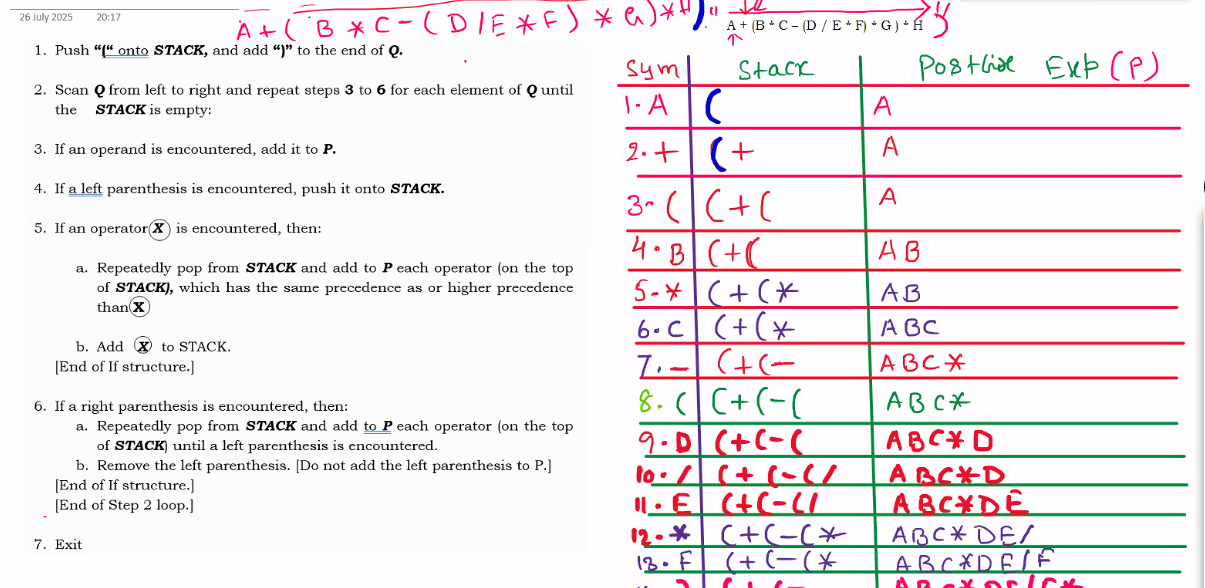 26 July 2025 20:17
A + ( B * C - ( D / E * F ) * G ) * H )
A + (B * C – (D / E * F) * G ) * H
1. Push “(“ onto STACK, and add “)” to the end of Q.
2. Scan Q from left to right and repeat steps 3 to 6 for each element of Q until
the STACK is empty:
3. If an operand is encountered, add it to P.
4. If a left parenthesis is encountered, push it onto STACK.
5. If an operator X is encountered, then:
a. Repeatedly pop from STACK and add to P each operator (on the top
of STACK), which has the same precedence as or higher precedence
than X
b. Add X to STACK.
[End of If structure.]
6. If a right parenthesis is encountered, then:
a. Repeatedly pop from STACK and add to P each operator (on the top
of STACK) until a left parenthesis is encountered.
b. Remove the left parenthesis. [Do not add the left parenthesis to P.]
[End of If structure.]
[End of Step 2 loop.]
7. Exit
Sym Stack Postfix Exp (P)
1. A ( A
2. + ( + A
3. ( ( + ( A
4. B ( + ( A B
5. * ( + ( * A B
6. C ( + ( * A B C
7. - ( + ( - A B C *
8. ( ( + ( - ( A B C *
9. D ( + ( - ( A B C * D
10. / ( + ( - ( / A B C * D
11. E ( + ( - ( / A B C * D E
12. * ( + ( - ( * A B C * D E /
13. F ( + ( - ( * A B C * D E / F